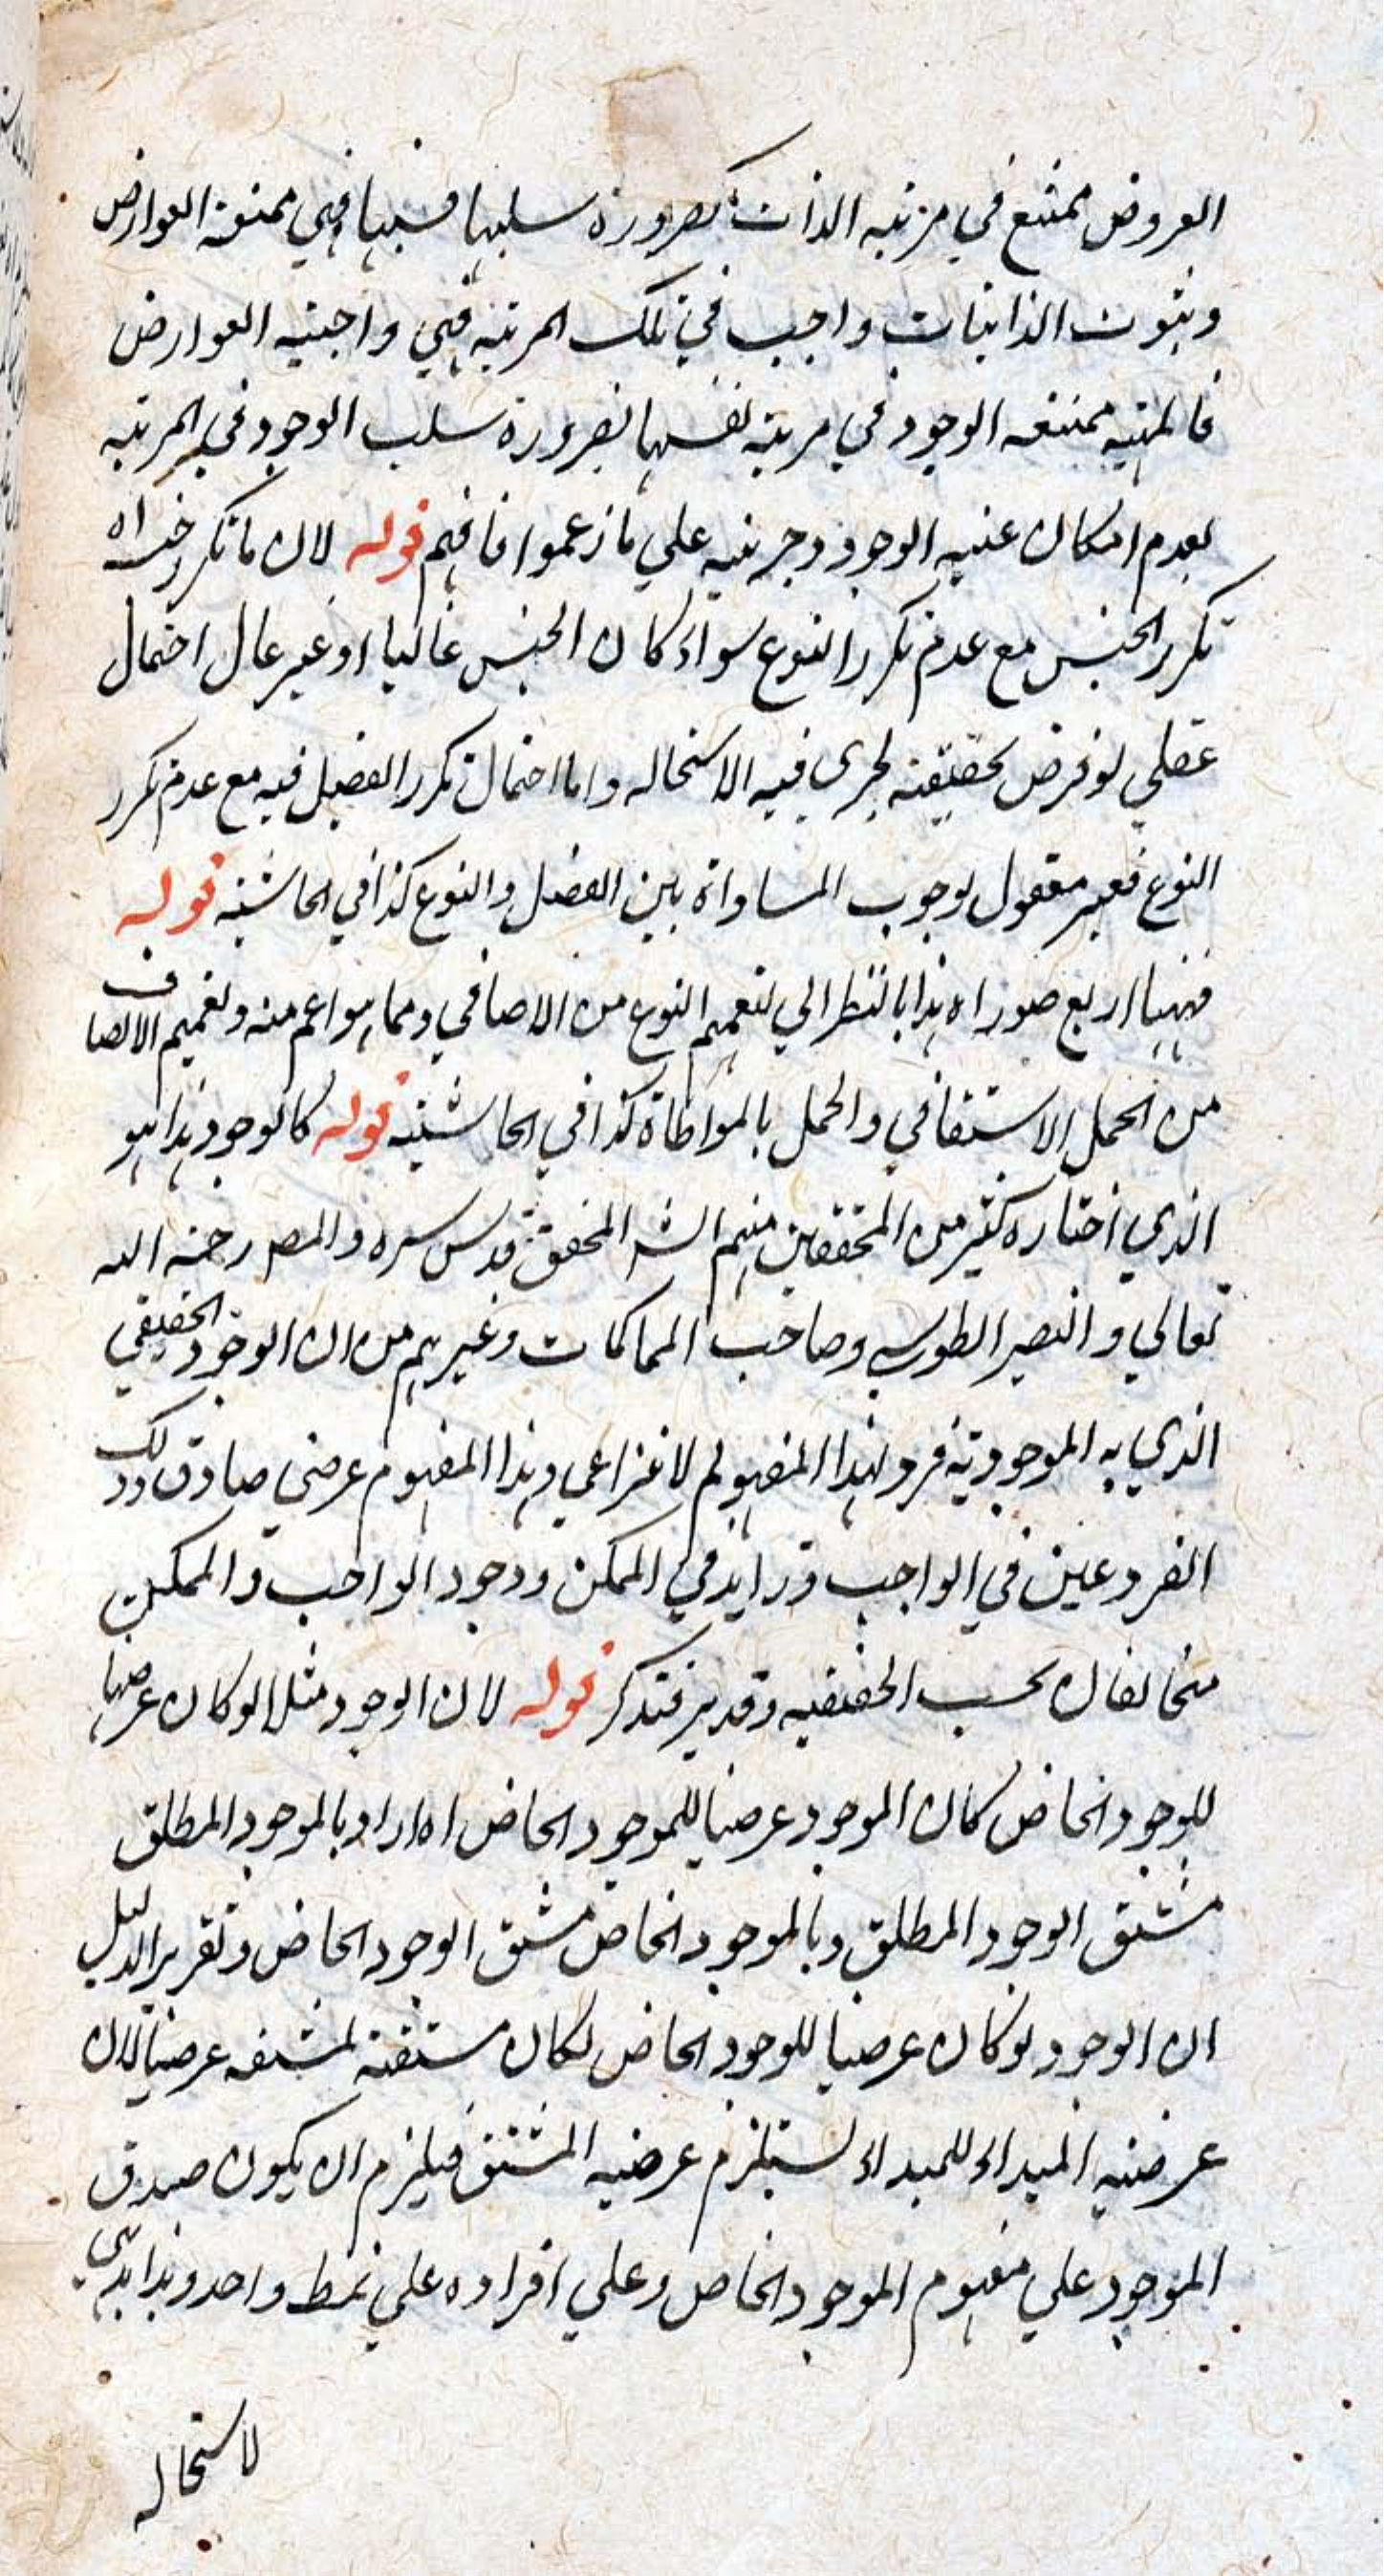 العروض ممتنع في مرتبه الذات بضرورة سلبها فيها فهي ممتنعة العوارض
وثبوت الذاتيات واجب في تلك المرتبه فهي واجبته العوارض
فالمهيه ممتنعه الوجود في مرتبة نفسها بضرورة سلب الوجود في المرتبه
لعدم امكان عنيه الوجود وجزئيه علي ما زعموا فافهم قوله لان ما تكرر جنسه اه
تكرر الجنس مع عدم تكرر النوع سواء كان الجنس عاليا او غير عال احتمال
عقلي لو فرض تحقيقته لجرى فيه الاستحاله واما احتمال تكرر الفصل فيه مع عدم تكرر
النوع فغير معقول لوجوب المساواة بين الفصل والنوع كذا في الحاشية قوله
فههنا اربع صور اه هذا بالنظر الي تعميم النوع من الاضافي ومما هو اعم منه وتعميم الاتصاف
من الحمل الاشتقاقي والحمل بالمواطاة كذا في الحاشيه قوله كالوجود هذا هو
الذي اختاره كثير من المحققين منهم الشر المحقق قدس سره والمصر رحمة الله
تعالي والنصير الطوسي وصاحب المحاكمات وغيرهم من ان الوجود الحقيقي
الذي به الموجودية فرد لهذا المفهوم الانتزاعي وهذا المفهوم عرضي صادق وذلك
الفرد عين في الواجب وزايد في الممكن ووجود الواجب والممكن
متخالفان بحسب الحقيقيه وقد مر فتذكر قوله لان الوجود مثلا لو كان عرضيا
للوجود الخاص كان الموجود عرضيا للموجود الخاص اه اراد بالموجود المطلق
مشتق الوجود المطلق وبالموجود الخاص مشتق الوجود الخاص وتقرير الدليل
ان الوجود لو كان عرضيا للوجود الخاص لكان مشتقه لمشتقه عرضيا لان
عرضيه المبداء للمبداء يستلزم عرضيه المشتق فيلزم ان يكون صدق
الموجود علي مفهوم الموجود الخاص وعلي افراده علي نمط واحد وهذا بديهي
لاستحاله